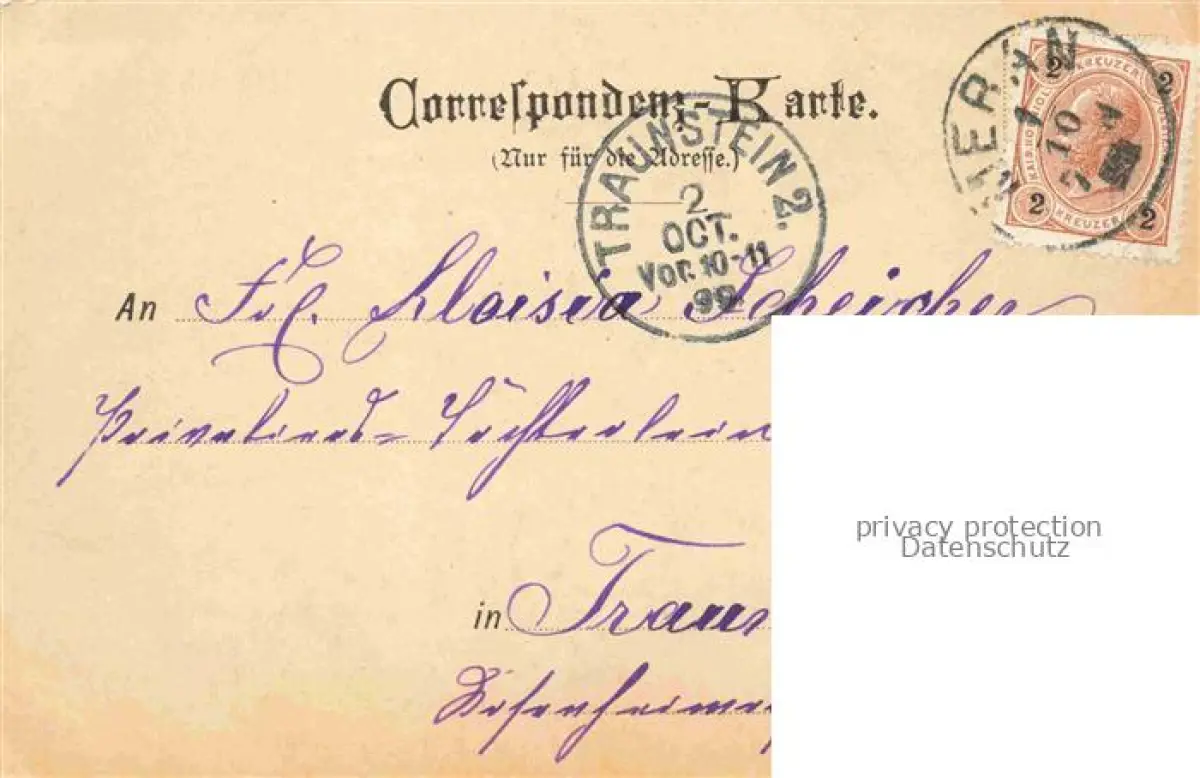 Correspondenz-Karte.
(Nur für die Adresse.)
MERAN
1
10
2
KREUZER
2
2
KREUZER
2
TRAUNSTEIN 2.
2
OCT.
Vor. 10-11
99
An Frl. Aloisia Scheicher
Privatiers- Töchterlein
privacy protection
Datenschutz
in Traun
Rosenheimer